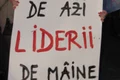 DE AZI
LIDERII
DE MÂINE